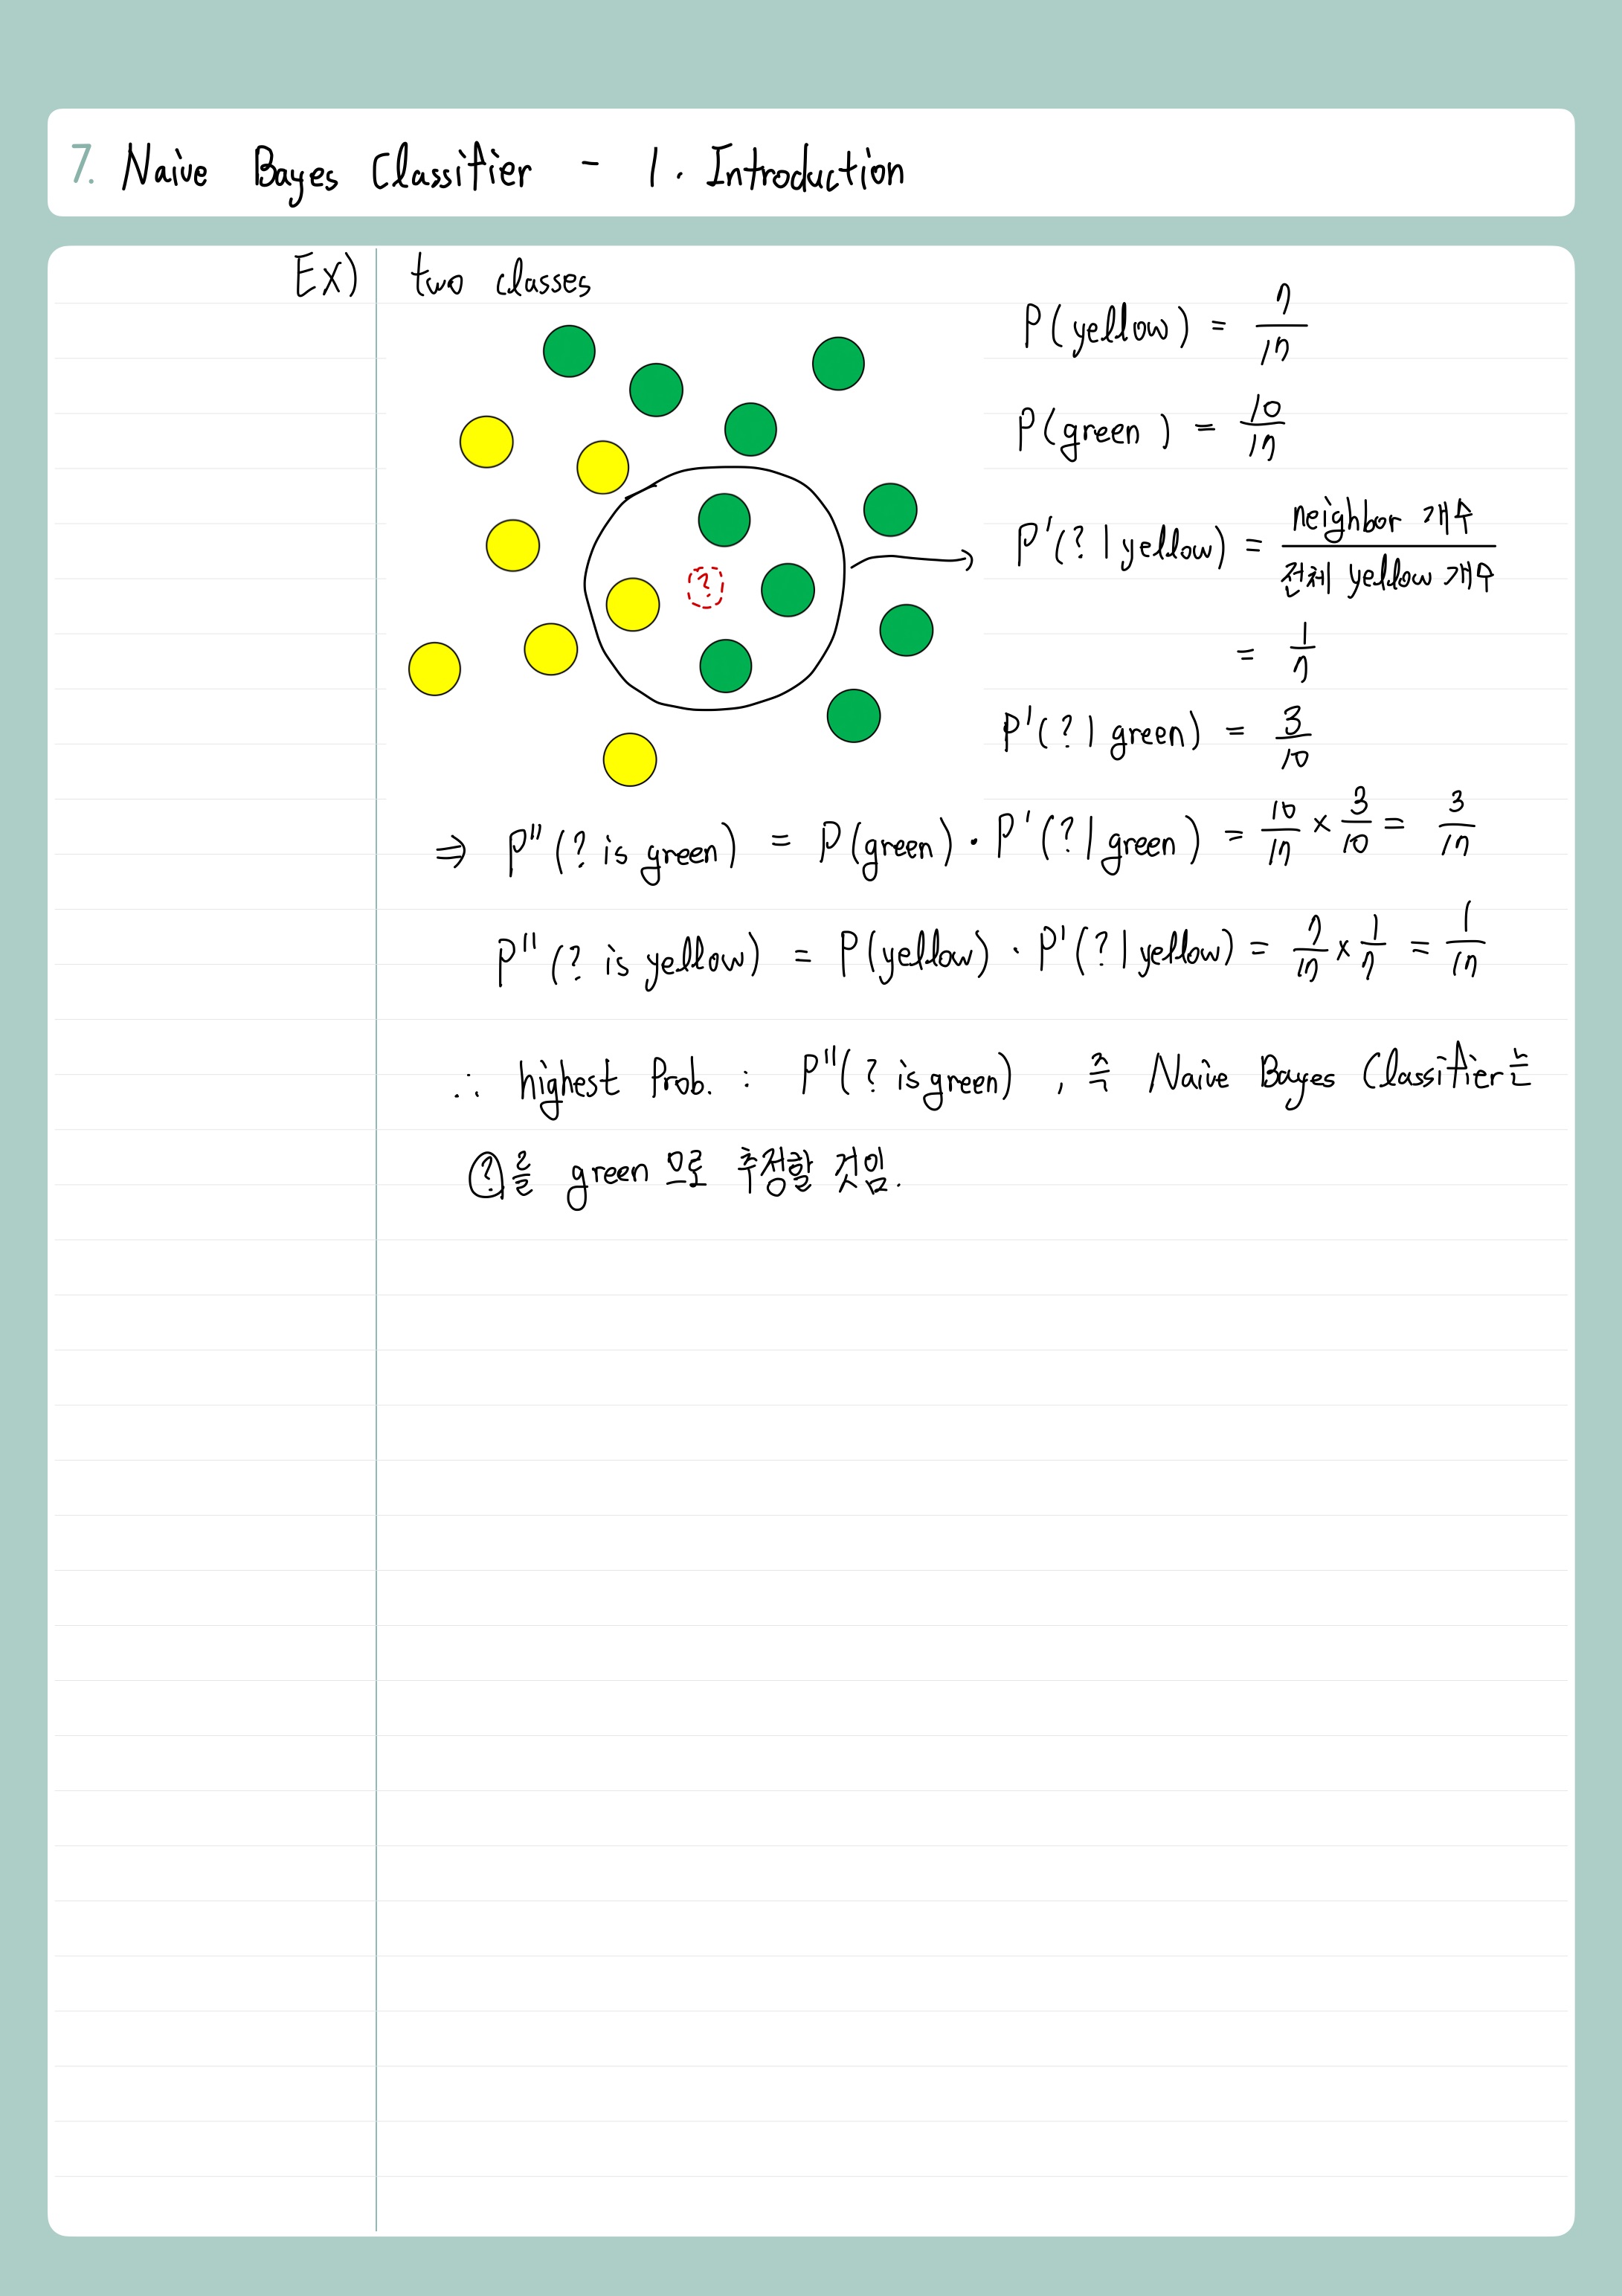 7. Naive Bayes Classifier - 1. Introduction
Ex) two classes
P(yellow) = 7/17
P(green) = 10/17
?
P'(?|yellow) = neighbor 개수 / 전체 yellow 개수
= 1/7
P'(?|green) = 3/10
⇒ P''(? is green) = P(green) · P'(?|green) = 10/17 × 3/10 = 3/17
P''(? is yellow) = P(yellow) · P'(?|yellow) = 7/17 × 1/7 = 1/17
∴ highest Prob. : P''(? is green) , 즉 Naive Bayes Classifier는
?을 green으로 추정할 것임.